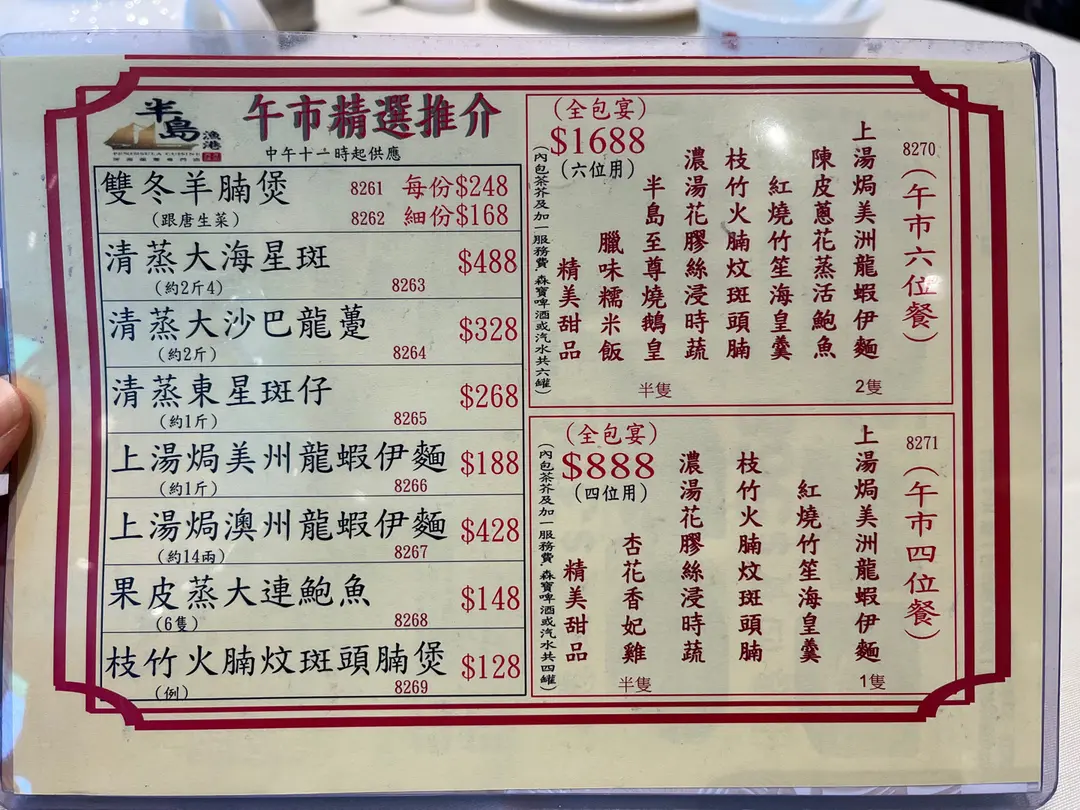 半島
漁港
PENINSULA CUISINE
午市精選推介
中午十一時起供應
雙冬羊腩煲 8261 每份$248
(跟唐生菜) 8262 細份$168
清蒸大海星斑 $488
(約2斤4) 8263
清蒸大沙巴龍躉 $328
(約2斤) 8264
清蒸東星斑仔 $268
(約1斤) 8265
上湯焗美州龍蝦伊麵 $188
(約1斤) 8266
上湯焗澳州龍蝦伊麵 $428
(約14兩) 8267
果皮蒸大連鮑魚 $148
(6隻) 8268
枝竹火腩炆斑頭腩煲 $128
(例) 8269
8270
(午市六位餐)
上湯焗美洲龍蝦伊麵 2隻
陳皮蔥花蒸活鮑魚
紅燒竹笙海皇羹
枝竹火腩炆斑頭腩
濃湯花膠絲浸時蔬
半島至尊燒鵝皇 半隻
臘味糯米飯
精美甜品
(全包宴)
$1688
(六位用)
(內包茶芥及加一服務費 森寶啤酒或汽水共六罐)
8271
(午市四位餐)
上湯焗美洲龍蝦伊麵 1隻
紅燒竹笙海皇羹
枝竹火腩炆斑頭腩
濃湯花膠絲浸時蔬
杏花香妃雞 半隻
精美甜品
(全包宴)
$888
(四位用)
(內包茶芥及加一服務費 森寶啤酒或汽水共四罐)